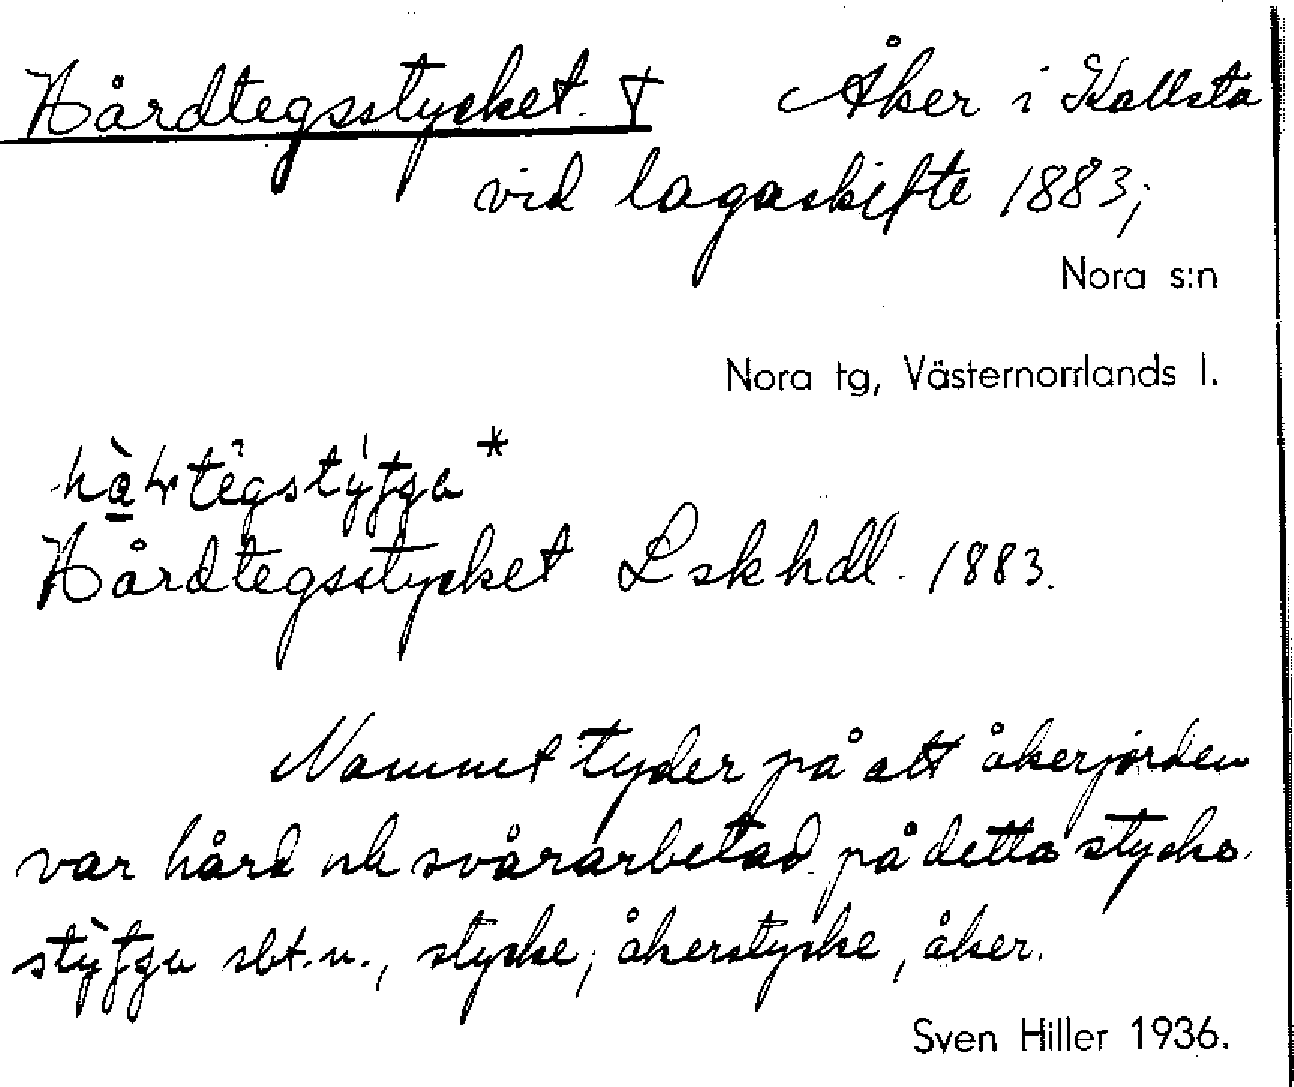 Hårdtegsstycket. † Åker i Kallsta
vid lagaskifte 1883;
Nora s:n
Nora tg, Västernorrlands l.
Hårdtegsstycket Lskhdl. 1883.
Namnet tyder på att åkerjorden
var hård och svårarbetad på detta stycke.
sbt.n., stycke, åkerstycke, åker.
Sven Hiller 1936.